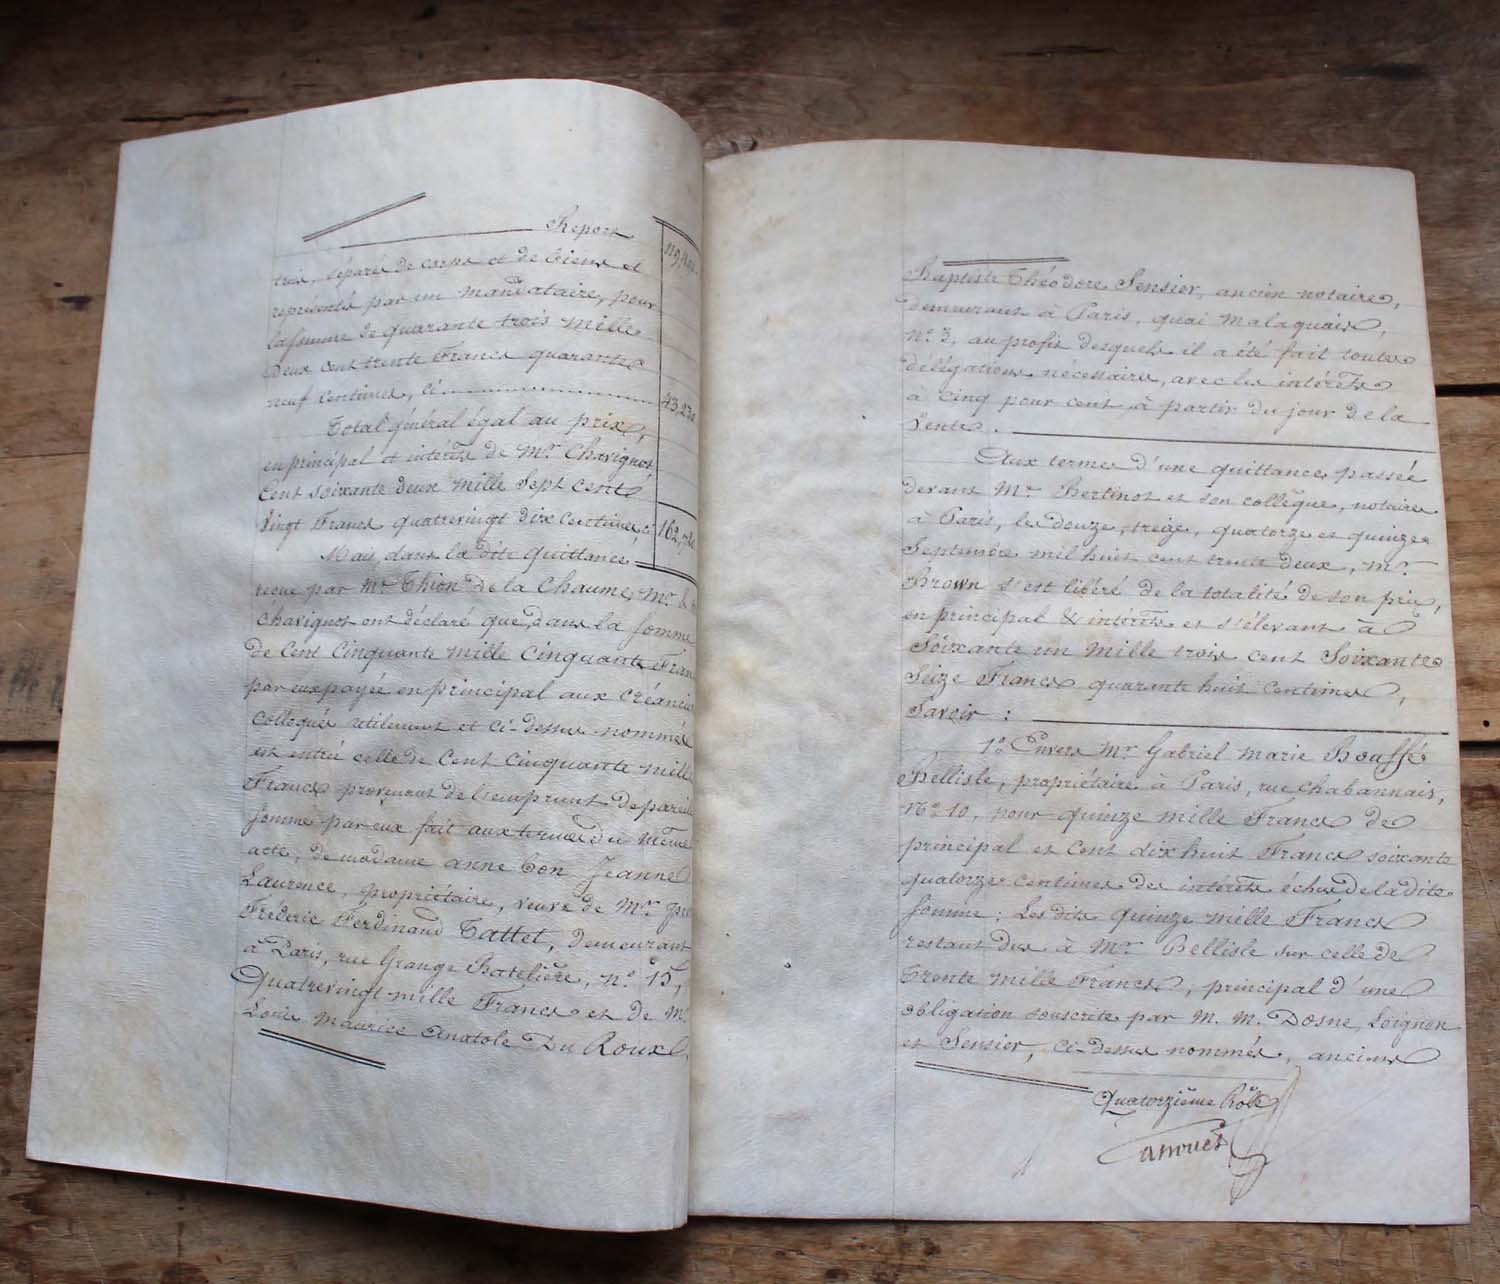 Report
trix, séparée de corps et de biens et
représenté par un mandataire, pour
la somme de quarante trois mille
deux cent trente Francs quarante
neuf centimes, ci
43,230
Total général égal au prix,
en principal et intérêts de Mr. Chavignot
Cent soixante deux mille sept cent
vingt Francs quatrevingt dix centimes, ci
162,720
Mais, dans la dite quittance,
reçue par Me Thion de la Chaume, Mr. &
Chavignot ont déclaré que, dans la somme
de Cent Cinquante mille Cinquante Francs
par eux payée en principal aux créanciers
colloqués utilement et ci-dessus nommés
est entrée celle de Cent Cinquante mille
Francs provenant de l'emprunt de pareille
somme par eux fait aux termes du même
acte, de madame anne Jeanne
Laurence, propriétaire, veuve de Mr.
Frédéric Ferdinand Tattet, demeurant
à Paris, rue Grange Batelière, n.° 15,
Quatrevingt mille Francs et de Mr.
Louis Maurice Anatole Du Roux,
Baptiste Théodore Sensier, ancien notaire,
demeurant à Paris, quai Malaquais,
n.° 3, au profit desquels il a été fait toutes
délégations nécessaires, avec les intérêts
à cinq pour cent, à partir du jour de la
Vente.
Aux termes d'une quittance, passée
devant Me Bertinot et son collègue, notaires
à Paris, les douze, treize, quatorze et quinze
Septembre mil huit cent trente deux, Mr.
Brown s'est libéré de la totalité de son prix,
en principal & intérêts et s'élevant à
Soixante un mille trois cent Soixante
Seize Francs quarante huit centimes,
Savoir :
1.° Envers Mr Gabriel Marie Bouffé
Bellisle, propriétaire à Paris, rue Chabannais,
n.° 10, pour quinze mille Francs de
principal et Cent dix huit Francs soixante
quatorze centimes des intérêts échus de la dite
somme ; Les dits quinze mille Francs
restant dus à Mr Bellisle sur celle de
Trente mille Francs, principal d'une
obligation souscrite par M. M. Dosne, Loignon
et Sensier, ci-dessus nommés, anciens
Quatorzième Rôle